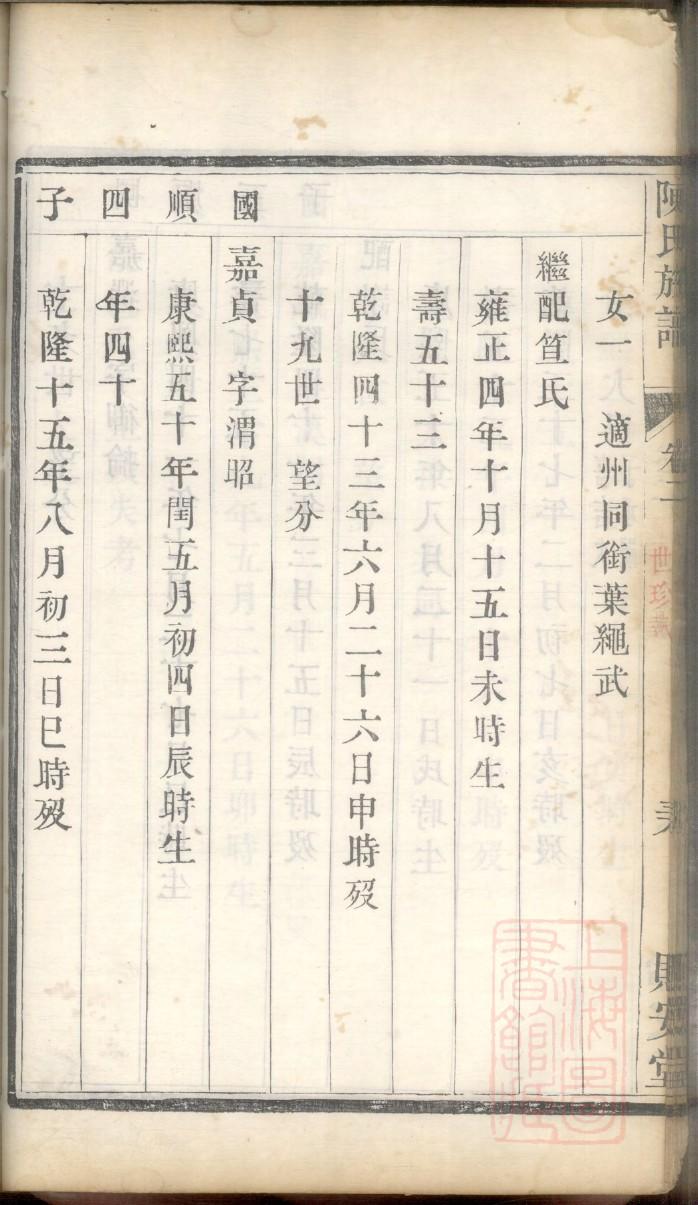 陳氏族譜
卷二
世珍裁
貽安堂
女一 適州同銜葉繩武
繼配笪氏
雍正四年十月十五日未時生
壽五十三
乾隆四十三年六月二十六日申時歿
十九世 望分
國順四子
嘉貞 字渭昭
康熙五十年閏五月初四日辰時生
年四十
乾隆十五年八月初三日巳時歿
上海圖書館藏